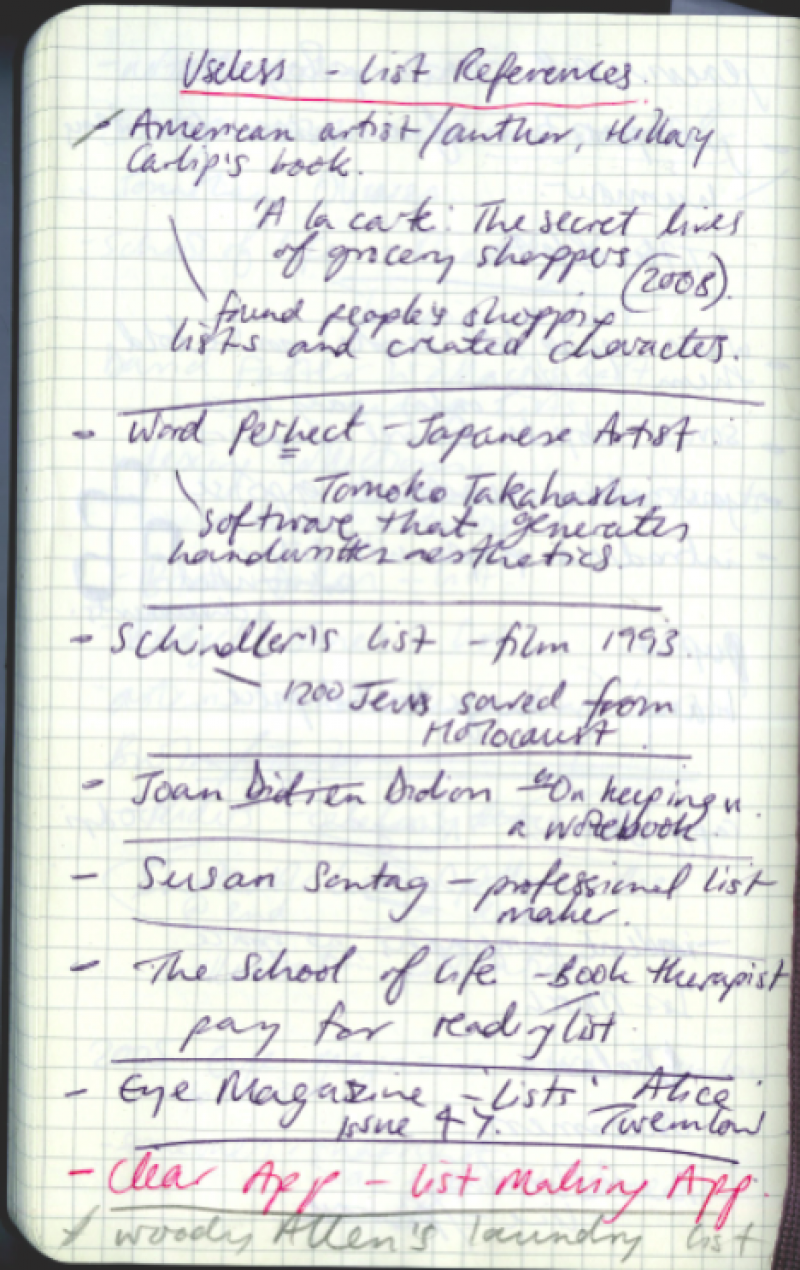 Useless - List References.
American artist/author, Hillary
Carlip's book.
'A la carte: The secret lives
of grocery shoppers
(2008).
found people's shopping
lists and created characters.
- Word Perhect - Japanese Artist.
Tomoko Takahashi
software that generates
handwritten aesthetics.
- Schindler's list - film 1993.
1200 Jews saved from
Holocaust.
- Joan Didien Didion - "On keeping
a notebook"
- Susan Sontag - professional list
maker.
- The School of Life - Book therapist
pay for reading list
- Eye Magazine - 'Lists' Alice
Issue 47. Twemlow
- Clear App - List Making App.
Woody Allen's laundry list